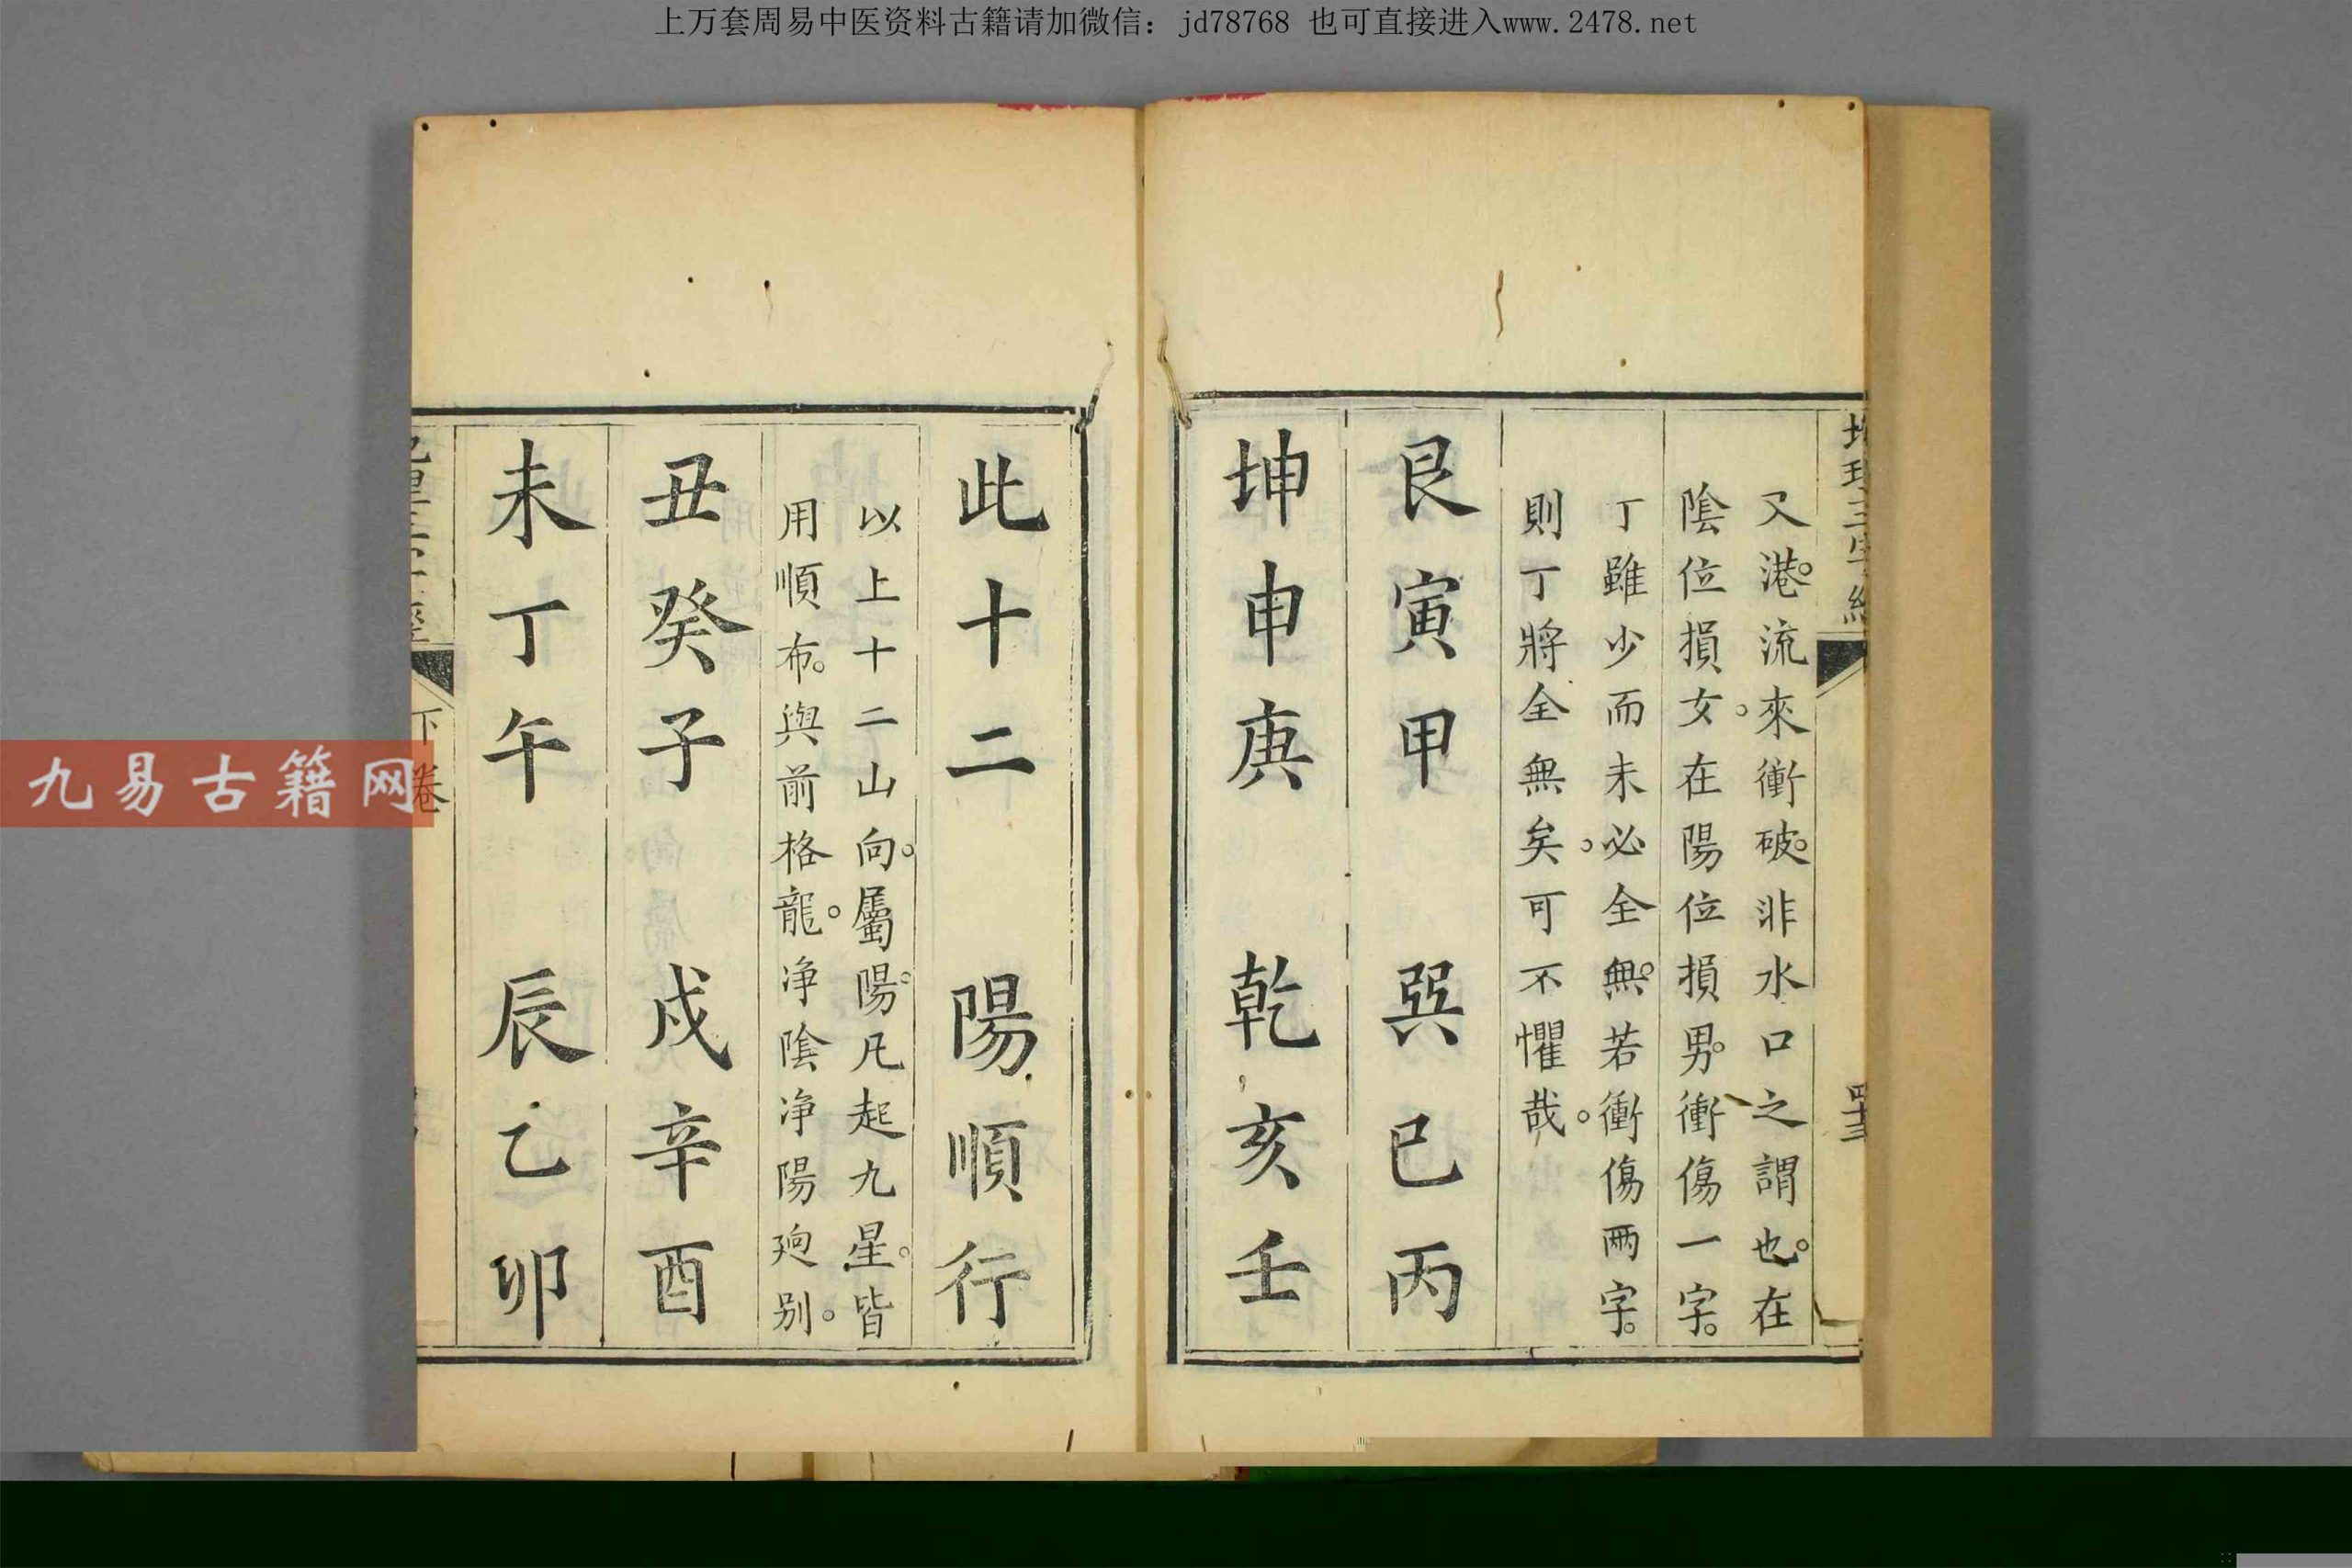 上万套周易中医资料古籍请加微信：jd78768 也可直接进入www.2478.net
地理三字經
四十三
又港。流來衝破。非水口之謂也。在
陰位損女。在陽位損男。衝傷一字。
丁雖少而未必全無。若衝傷兩字。
則丁將全無矣。可不懼哉。
艮寅甲 巽巳丙
坤申庚 乾亥壬
此十二 陽順行
以上十二山向。屬陽。凡起九星。皆
用順布。與前格龍。净陰净陽迥别。
丑癸子 戌辛酉
未丁午 辰乙卯
下卷
九易古籍网